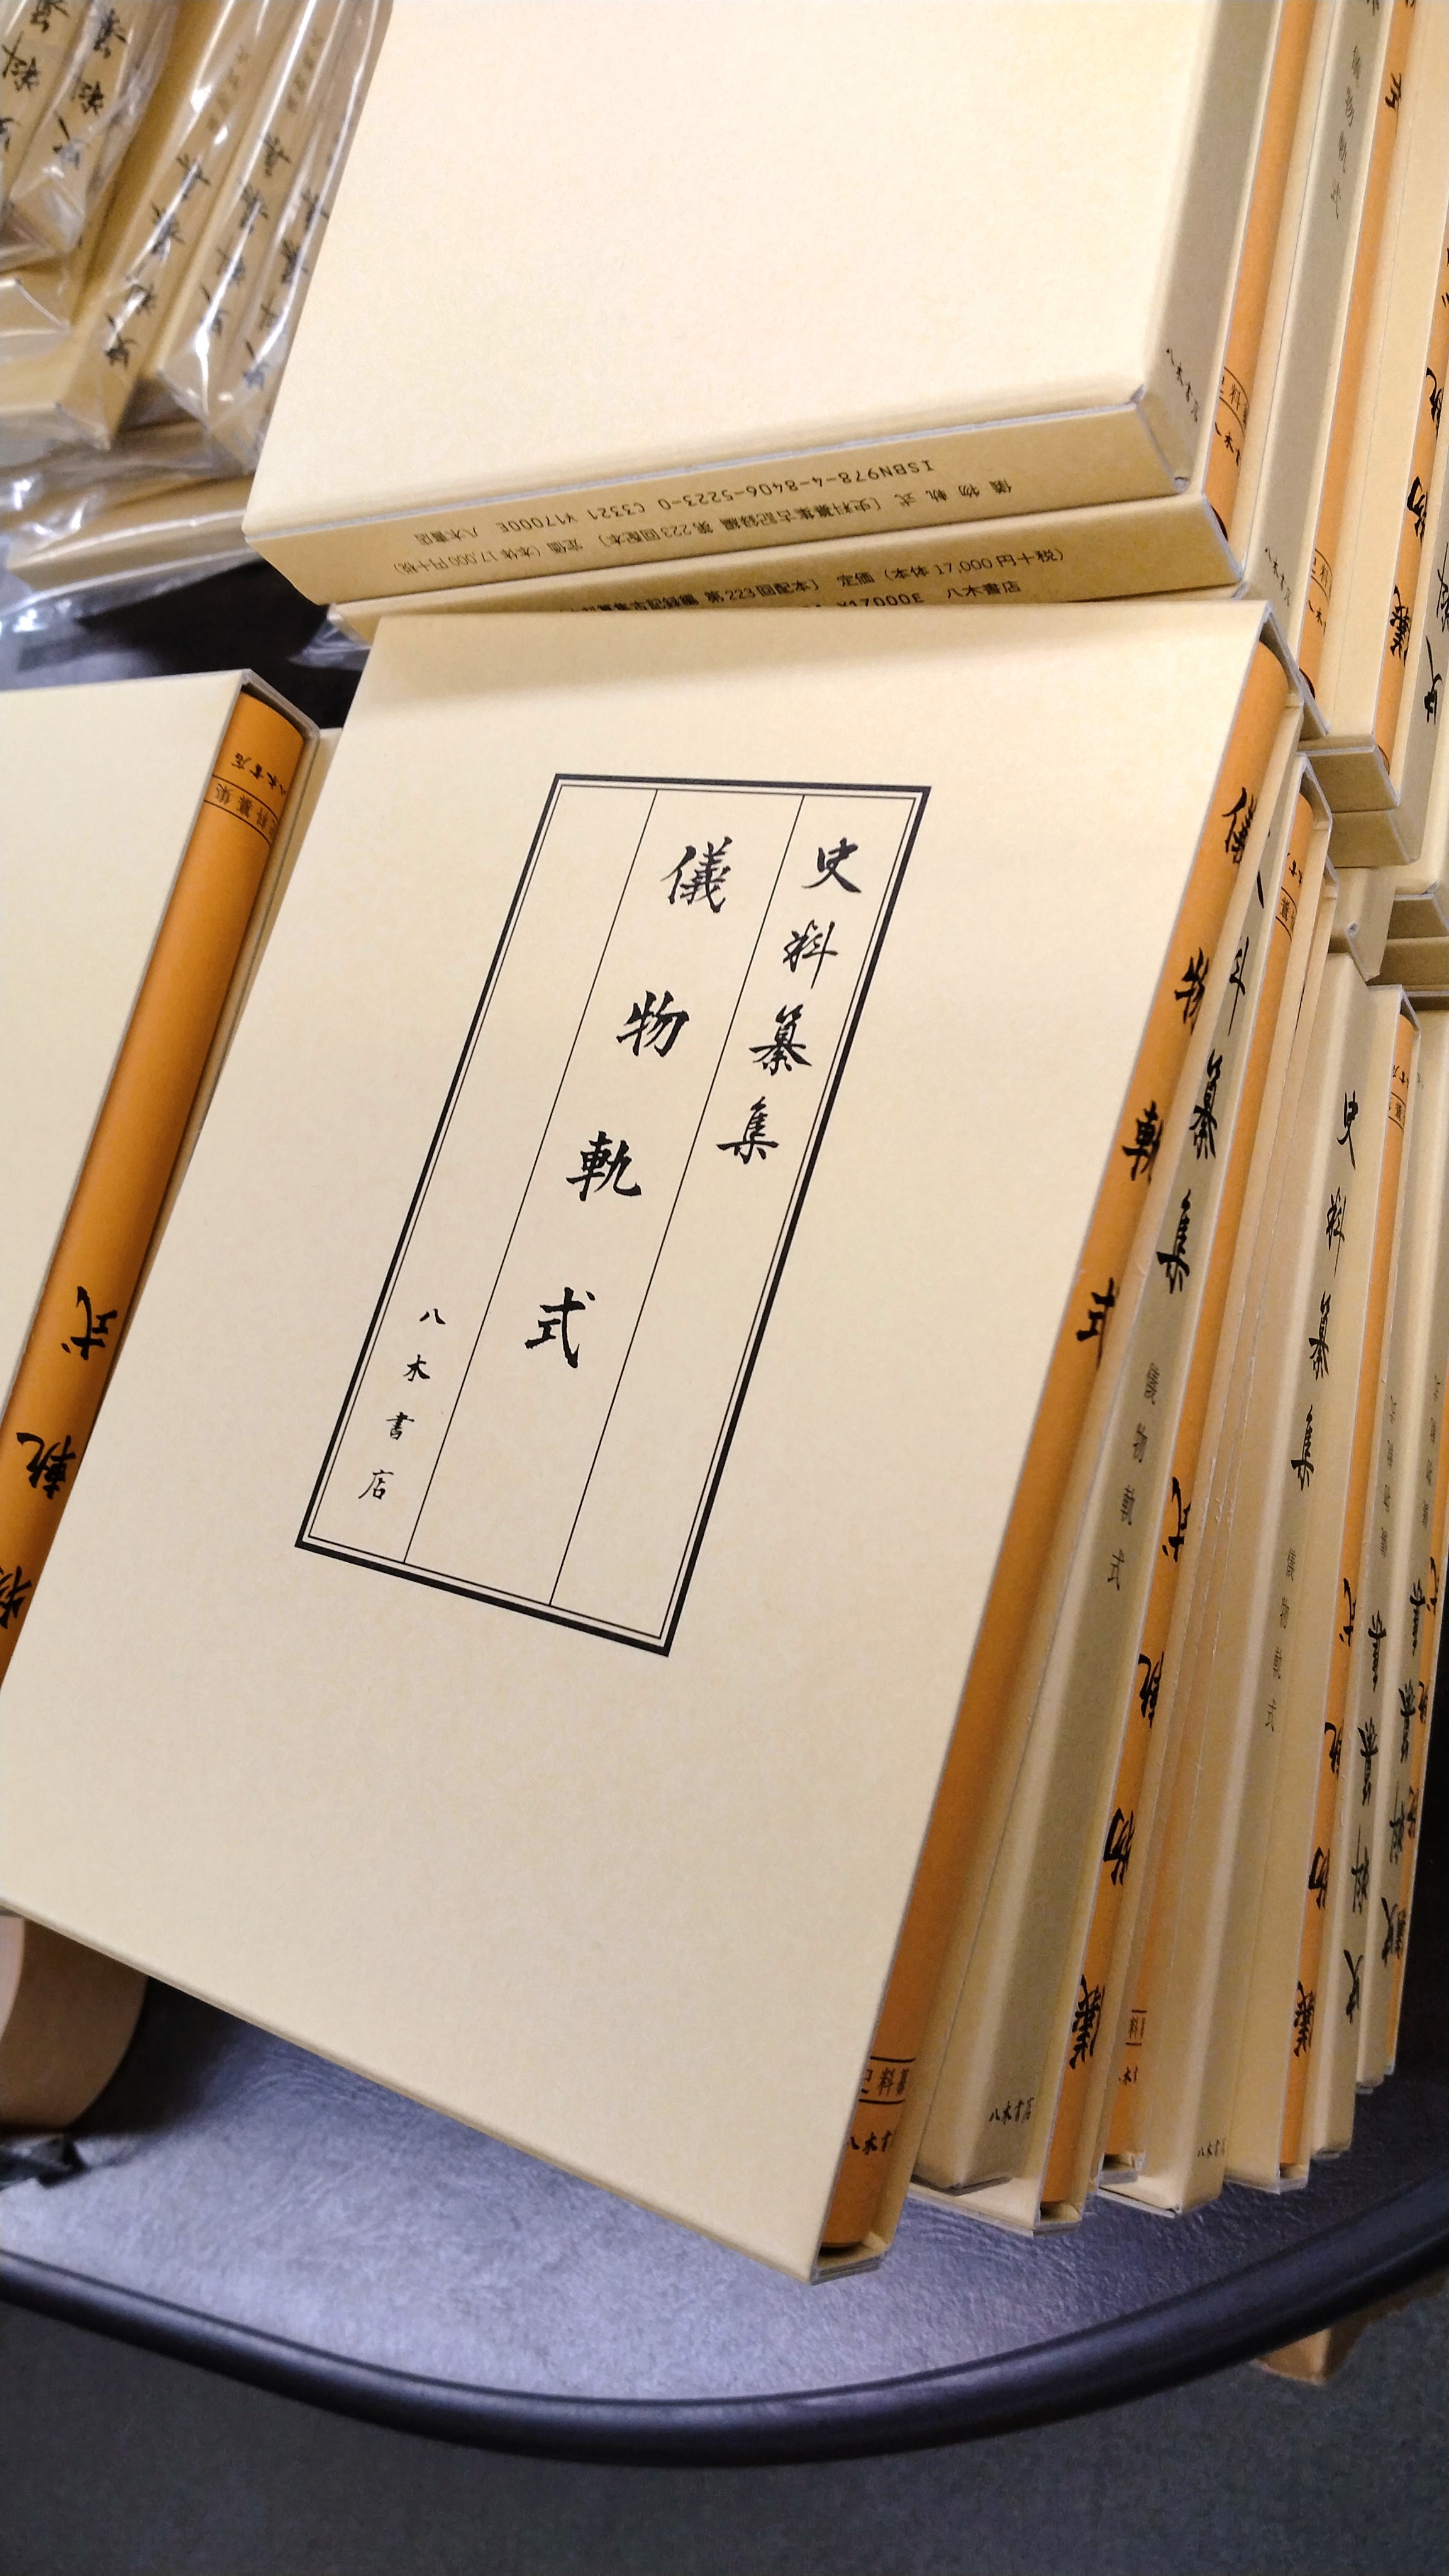 史料纂集
儀物軌式
八木書店
ISBN978-4-8406-5223-0 C3321 ¥17000E 八木書店
儀物軌式〔史料纂集古記録編 第223回配本〕 定価（本体17,000円＋税）
纂集古記録編 第223回配本〕 定価（本体17,000円＋税）
¥17000E 八木書店
八木書店
史料纂集
式
軌
儀物軌式
料纂
八木書
料纂集
八木書店
儀物軌式
史料纂集
儀物軌式
八木書
儀物軌式
史料纂集
八木書店